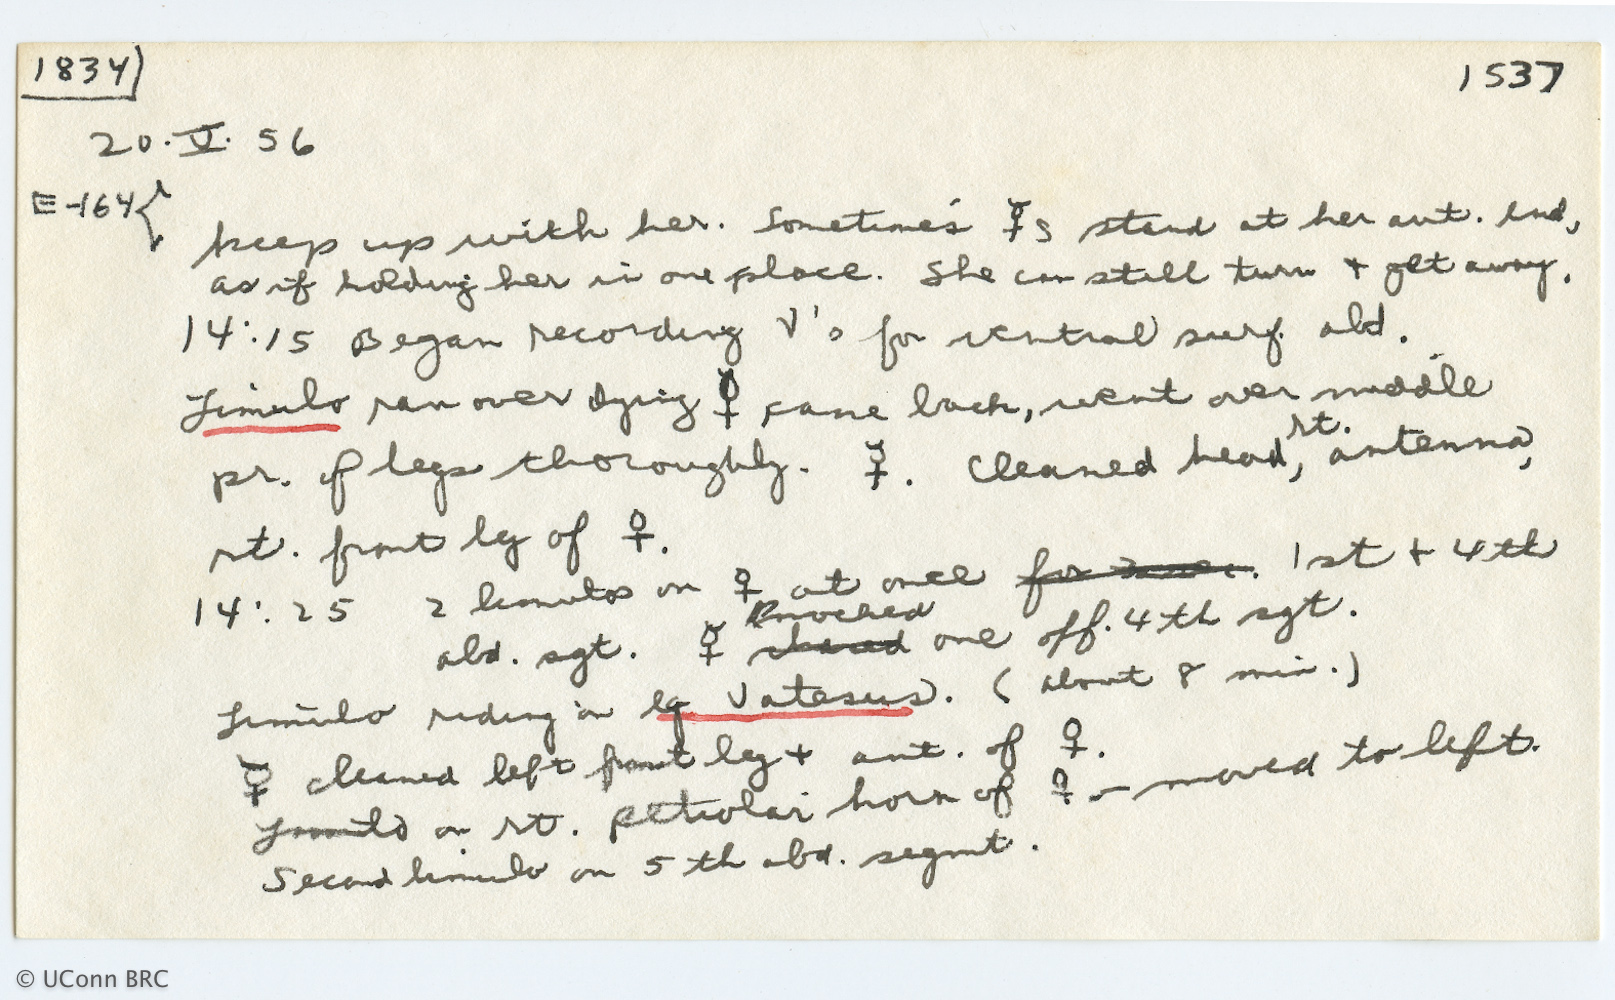 1834) 1537
20.V.56
E-164{
keep up with her. Sometimes ☿s stand at her ant. end,
as if holding her in one place. She can still turn + get away.
14:15 Began recording V's for ventral surf. abd.
Limulo ran over dying ☿ came back, went over middle
pr. of legs thoroughly. ☿. Cleaned head, rt. antenna,
rt. front leg of ♀.
14:25 2 limulos on ♀ at once for 1st + 4th
abd. sgt. ☿ knocked one off. 4th sgt.
Limulo riding on lg Vatesus. (about 8 min.)
☿ cleaned left front leg + ant. of ♀.
Limulo on rt. petiolar horn of ♀ - moved to left.
Second limulo on 5th abd. segmt.
© UConn BRC